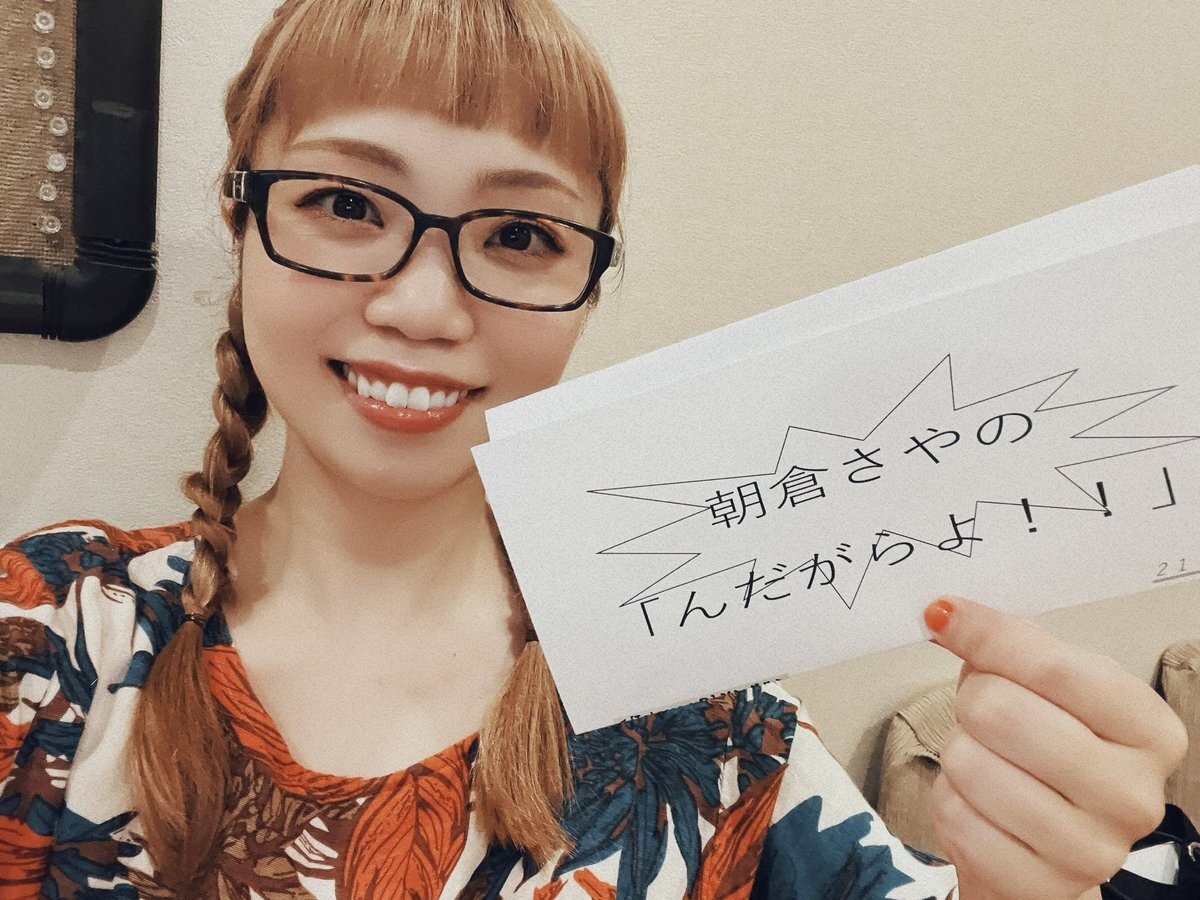 朝倉さやの
「んだがらよ！！」
21